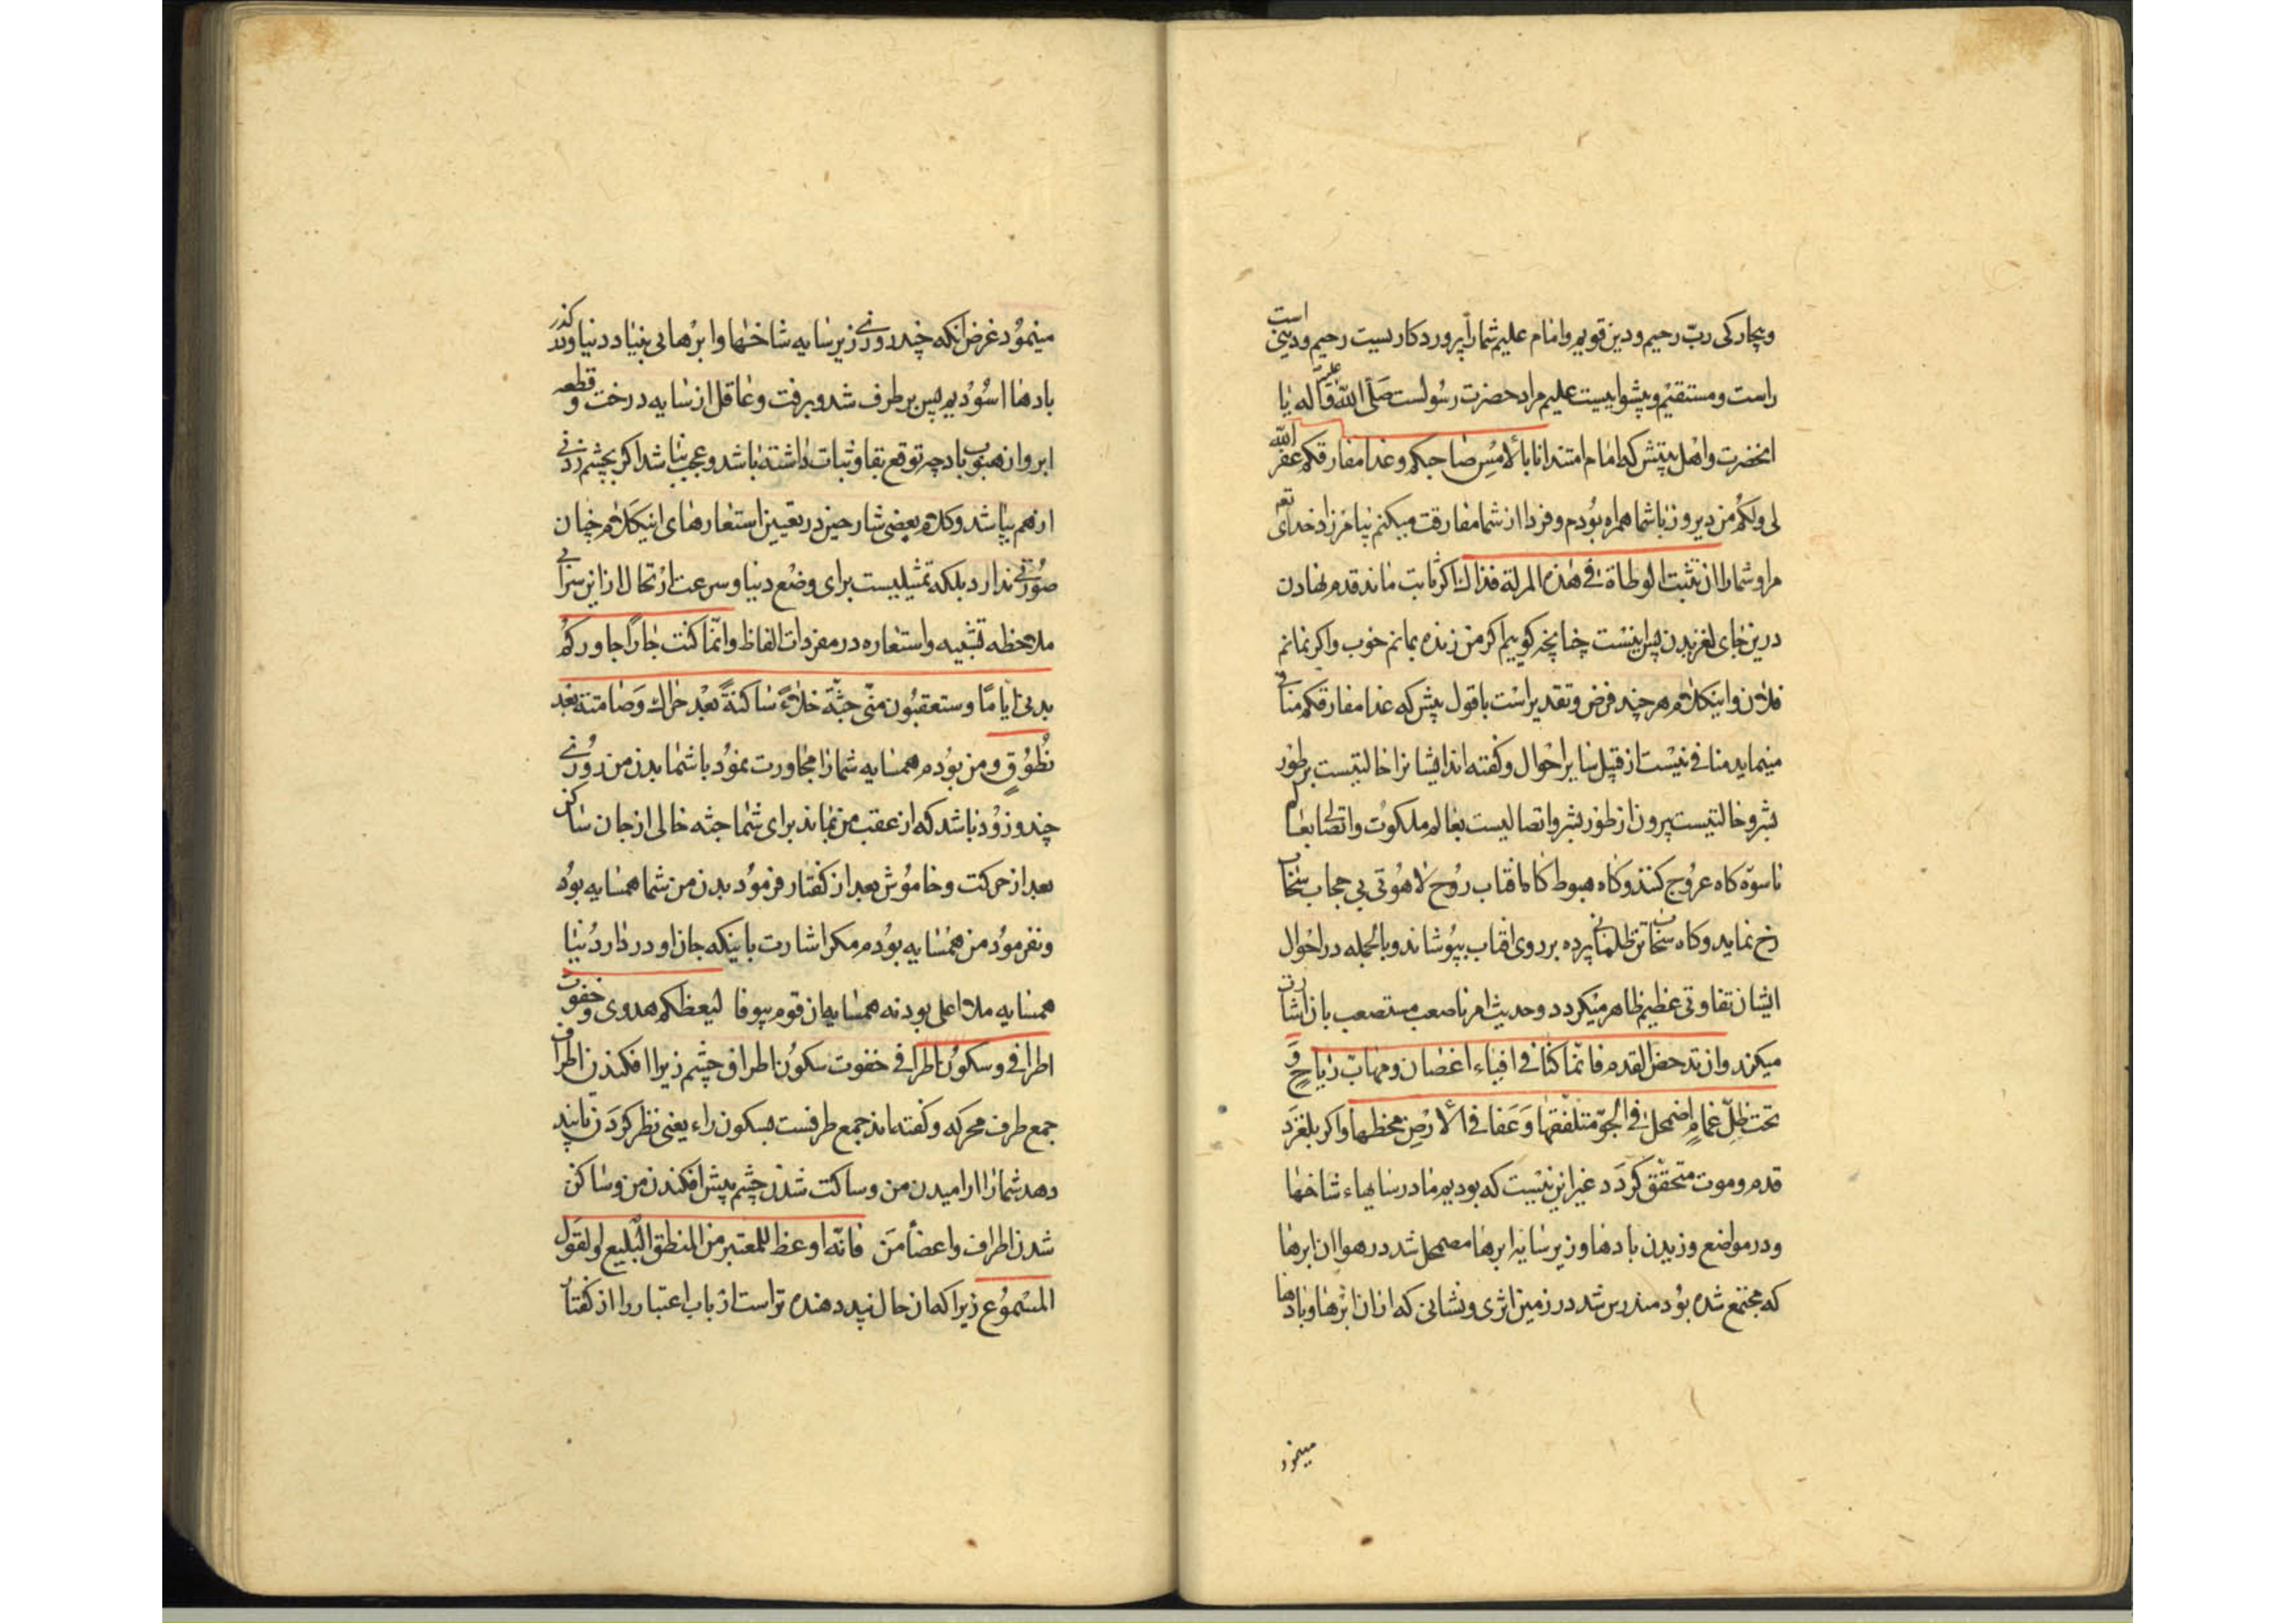 وبچارکی ربّ رحیم ودین قویم وامام علیم شما را پروردکاریست رحیم ودینی است
راست ومستقیم وپیشواییست علیم مراد حضرت رسولست صلّی اللّه علیه وآله یا
انحضرت واهل بیتش که امام امتند انا بالأمس صاحبکم وغدا مفارقکم غفر اللّه
لی ولکم من دیروز با شما همراه بودم وفردا از شما مفارقت میکنم بیامرزاد خدای تعم
مرا وشما را ان تثبت الوطاة فی هذه المزلة فذاك اکر ثابت ماند قدم نهادن
درین جای لغزیدن پس اینست چنانچه کوییم اکر من زنده بمانم خوب واکر نمانم
فلان واینکلام هر چند فرض وتقدیر است با قول پیش که غدا مفارقکم منافی
مینماید منافی نیست از قبیل سایر احوال وکفته اند ایشانرا حالتیست بر طور
بشر وحالتیست بیرون از طور بشر واتصالیست بعالم ملکوت واتصالی بعالم
ناسوة کاه عروج کنند وکاه هبوط کاه افتاب روح لاهوتی بی حجاب سحاب
رخ نماید وکاه سحاب تن ظلمانی پرده بر روی افتاب بپوشاند وبالجمله در احوال
ایشان تفاوتی عظیم ظاهر میکردد وحدیث امرنا صعب مستصعب بان اشارت
میکند وان تدحض القدم فانّما کنّا فی افیاء اغصان ومهابّ ریاح و
تحت ظلّ غمام اضمحل فی الجوّ متلفقها وعفا فی الأرض مخطها واکر بلغزد
قدم وموت متحقق کردد غیر این نیست که بودیم ما در سایهاء شاخها
ودر مواضع وزیدن بادها وزیر سایه ابرها مضمحل شد در هوا ان ابرها
که مجتمع شده بود مندرس شد در زمین اثری ونشانی که از ان ابرها وبادها
مینمود
مینمود غرض انکه چند روزی زیر سایه شاخها وابرهای بنیاد دنیا و کذر
بادها اسودیم پس بر طرف شد وبرفت وعاقل از سایه درخت و قطعه
ابر وان هبوب باد چه توقع بقا وثبات داشته باشد وعجب نباشد اکر بچشم زدنی
از هم بپاشد وکلام بعضی شارحین در تعیین استعارهای اینکلام چنان
صورتی ندارد بلکه تمثیلیست برای وضع دنیا وسرعت ارتحال از این سرا بی
ملاحظه تشبیه واستعاره در مفردات الفاظ وانّما کنت جارا جاورکم
بدنی ایاما وستعقبون منّی جثّة خلاء ساکنة بعد حراك وصامتة بعد
نطوق ومن بودم همسایه شما را مجاورت نمود با شما بدن من روزی
چند وزود باشد که از عقب من بماند برای شما جثه خالی از جان ساکن
بعد از حرکت وخاموش بعد از کفتار فرمود بدن من شما همسایه بود
ونفرمود من همسایه بودم مکر اشارت باینکه جان او در دار دنیا
همسایه ملا اعلی بود نه همسایه ان قوم بیوفا لیعظکم هدوی و خفوت
اطرافی وسکون اطرافی خفوت سکون اطراف چشم زیرا افکندن اطراف
جمع طرف محرکه وکفته اند جمع طرفست بسکون راء یعنی نظر کردن تا پند
دهد شما را ارامیدن من وساکت شدن چشم پیش افکندن من وساکن
شدن اطراف واعضا من فانّه اوعظ للمعتبر من المنطق البلیع والقول
المسموع زیرا که ان حال پند دهنده تر است ارباب اعتبار را از کفتار